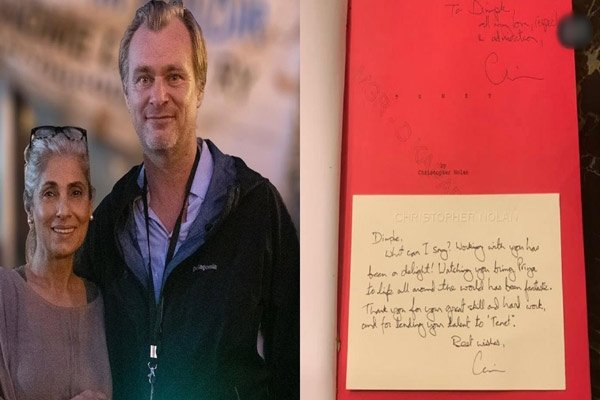 patagonia
To Dimple,
all my love, respect
& admiration,
Chris
TENET
by
Christopher Nolan
CHRISTOPHER NOLAN
Dimple,
What can I say? Working with you has
been a delight! Watching you bring Priya
to life all around the world has been fantastic.
Thank you for your great skill and hard work,
and for lending your talent to 'Tenet'.
Best wishes,
Chris